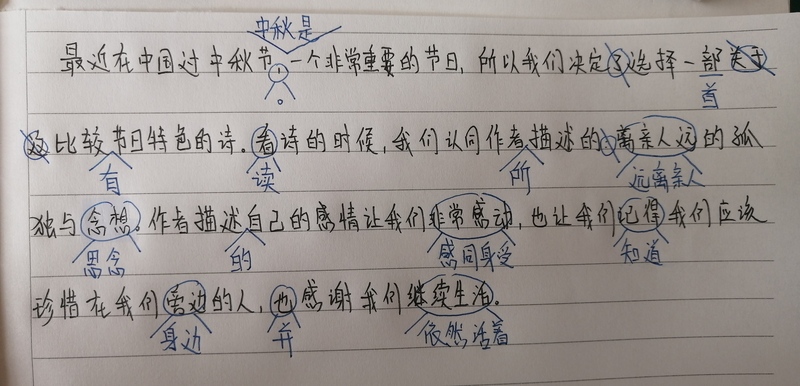 中秋是
最近在中国过中秋节，一个非常重要的节日，所以我们决定了选择一部关于
。 首
比较节日特色的诗。看诗的时候，我们认同作者描述的离亲人远的孤
有 读 所 远离亲人
独与念想。作者描述自己的感情让我们非常感动，也让我们记得我们应该
思念 的 感同身受 知道
珍惜在我们旁边的人，也感谢我们继续生活。
身边 并 依然活着